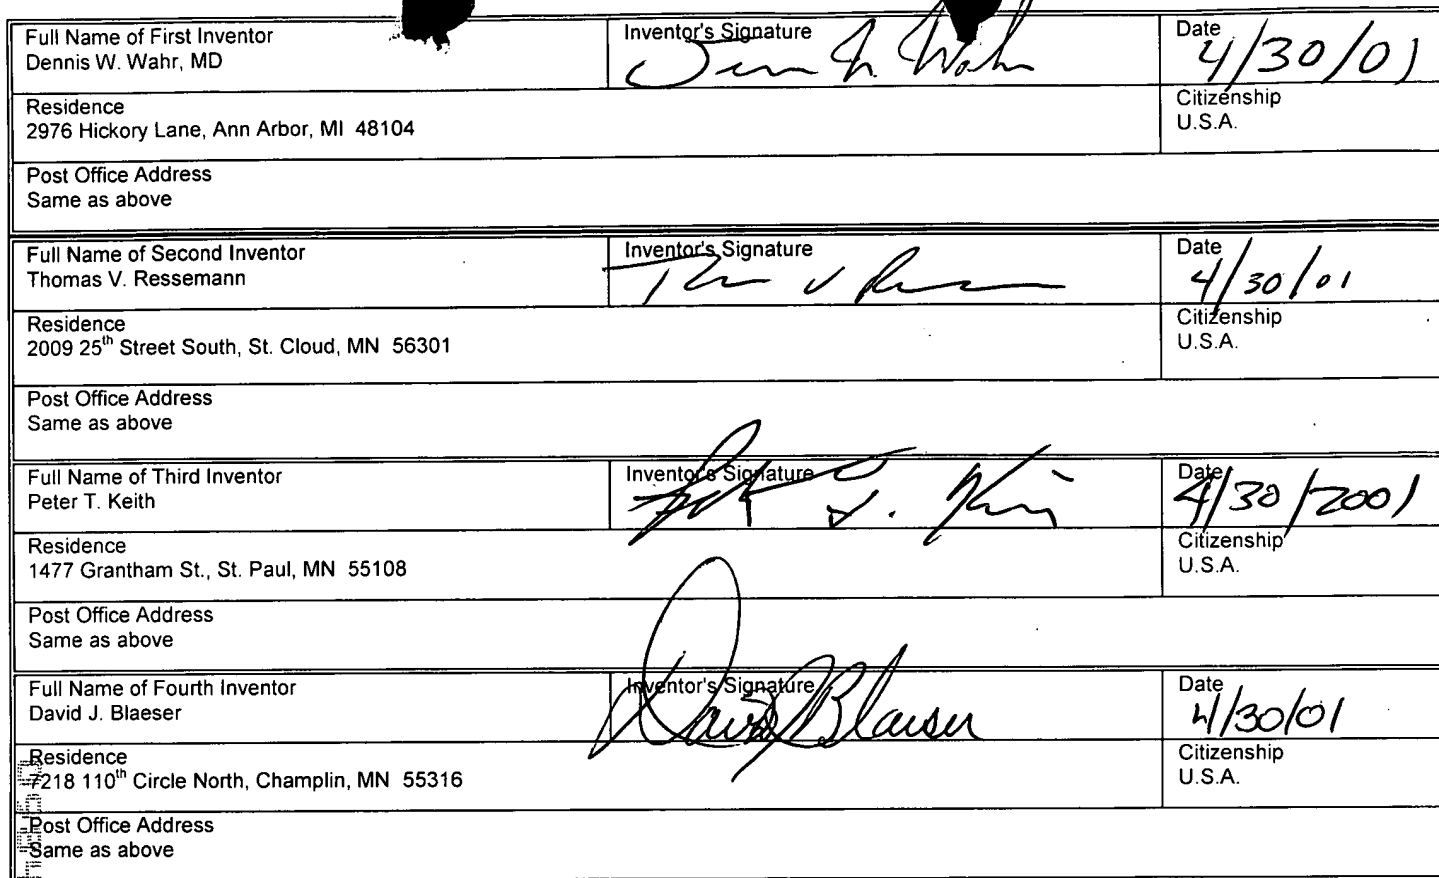 Full Name of First Inventor
Dennis W. Wahr, MD
Inventor's Signature
Date
4/30/01
Residence
2976 Hickory Lane, Ann Arbor, MI 48104
Citizenship
U.S.A.
Post Office Address
Same as above
Full Name of Second Inventor
Thomas V. Ressemann
Inventor's Signature
Date
4/30/01
Residence
2009 25th Street South, St. Cloud, MN 56301
Citizenship
U.S.A.
Post Office Address
Same as above
Full Name of Third Inventor
Peter T. Keith
Inventor's Signature
Date
4/30/2001
Residence
1477 Grantham St., St. Paul, MN 55108
Citizenship
U.S.A.
Post Office Address
Same as above
Full Name of Fourth Inventor
David J. Blaeser
Inventor's Signature
David J Blaeser
Date
4/30/01
Residence
7218 110th Circle North, Champlin, MN 55316
Citizenship
U.S.A.
Post Office Address
Same as above